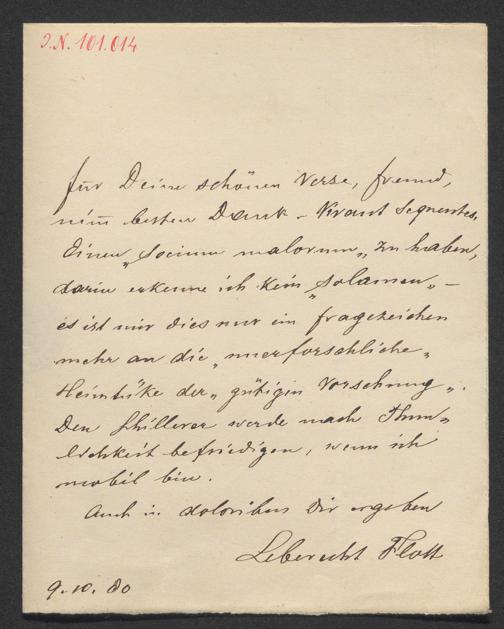 J.N. 101.014
für Deine schönen Verse, Freund,
nim̅ besten Dank – Krant sequentes.
Einen „socium malorum„ zu haben,
darin erkenne ich kein „solamen„ –
es ist mir dies nur ein Fragezeichen
mehr an die „unerforschliche„
Heimtüke der „gütigen Vorsehung„.
Den Schillerer werde nach Thun„
lichkeit befriedigen, wenn ich
mobil bin.
Auch in doloribus Dir ergeben
Leberecht Flott
9.10.80